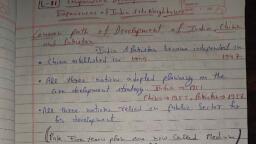 Experiences of India & its Neighbours
Common path of Development of India, China
and Pakistan
India & Pakistan became independent in
1947.
• China established in 1949
• All three nations adopted planning as the
core development strategy. India → 1951
China → 1953, Pakistan → 1956
• All three nations relied on Public Sector for
for development.